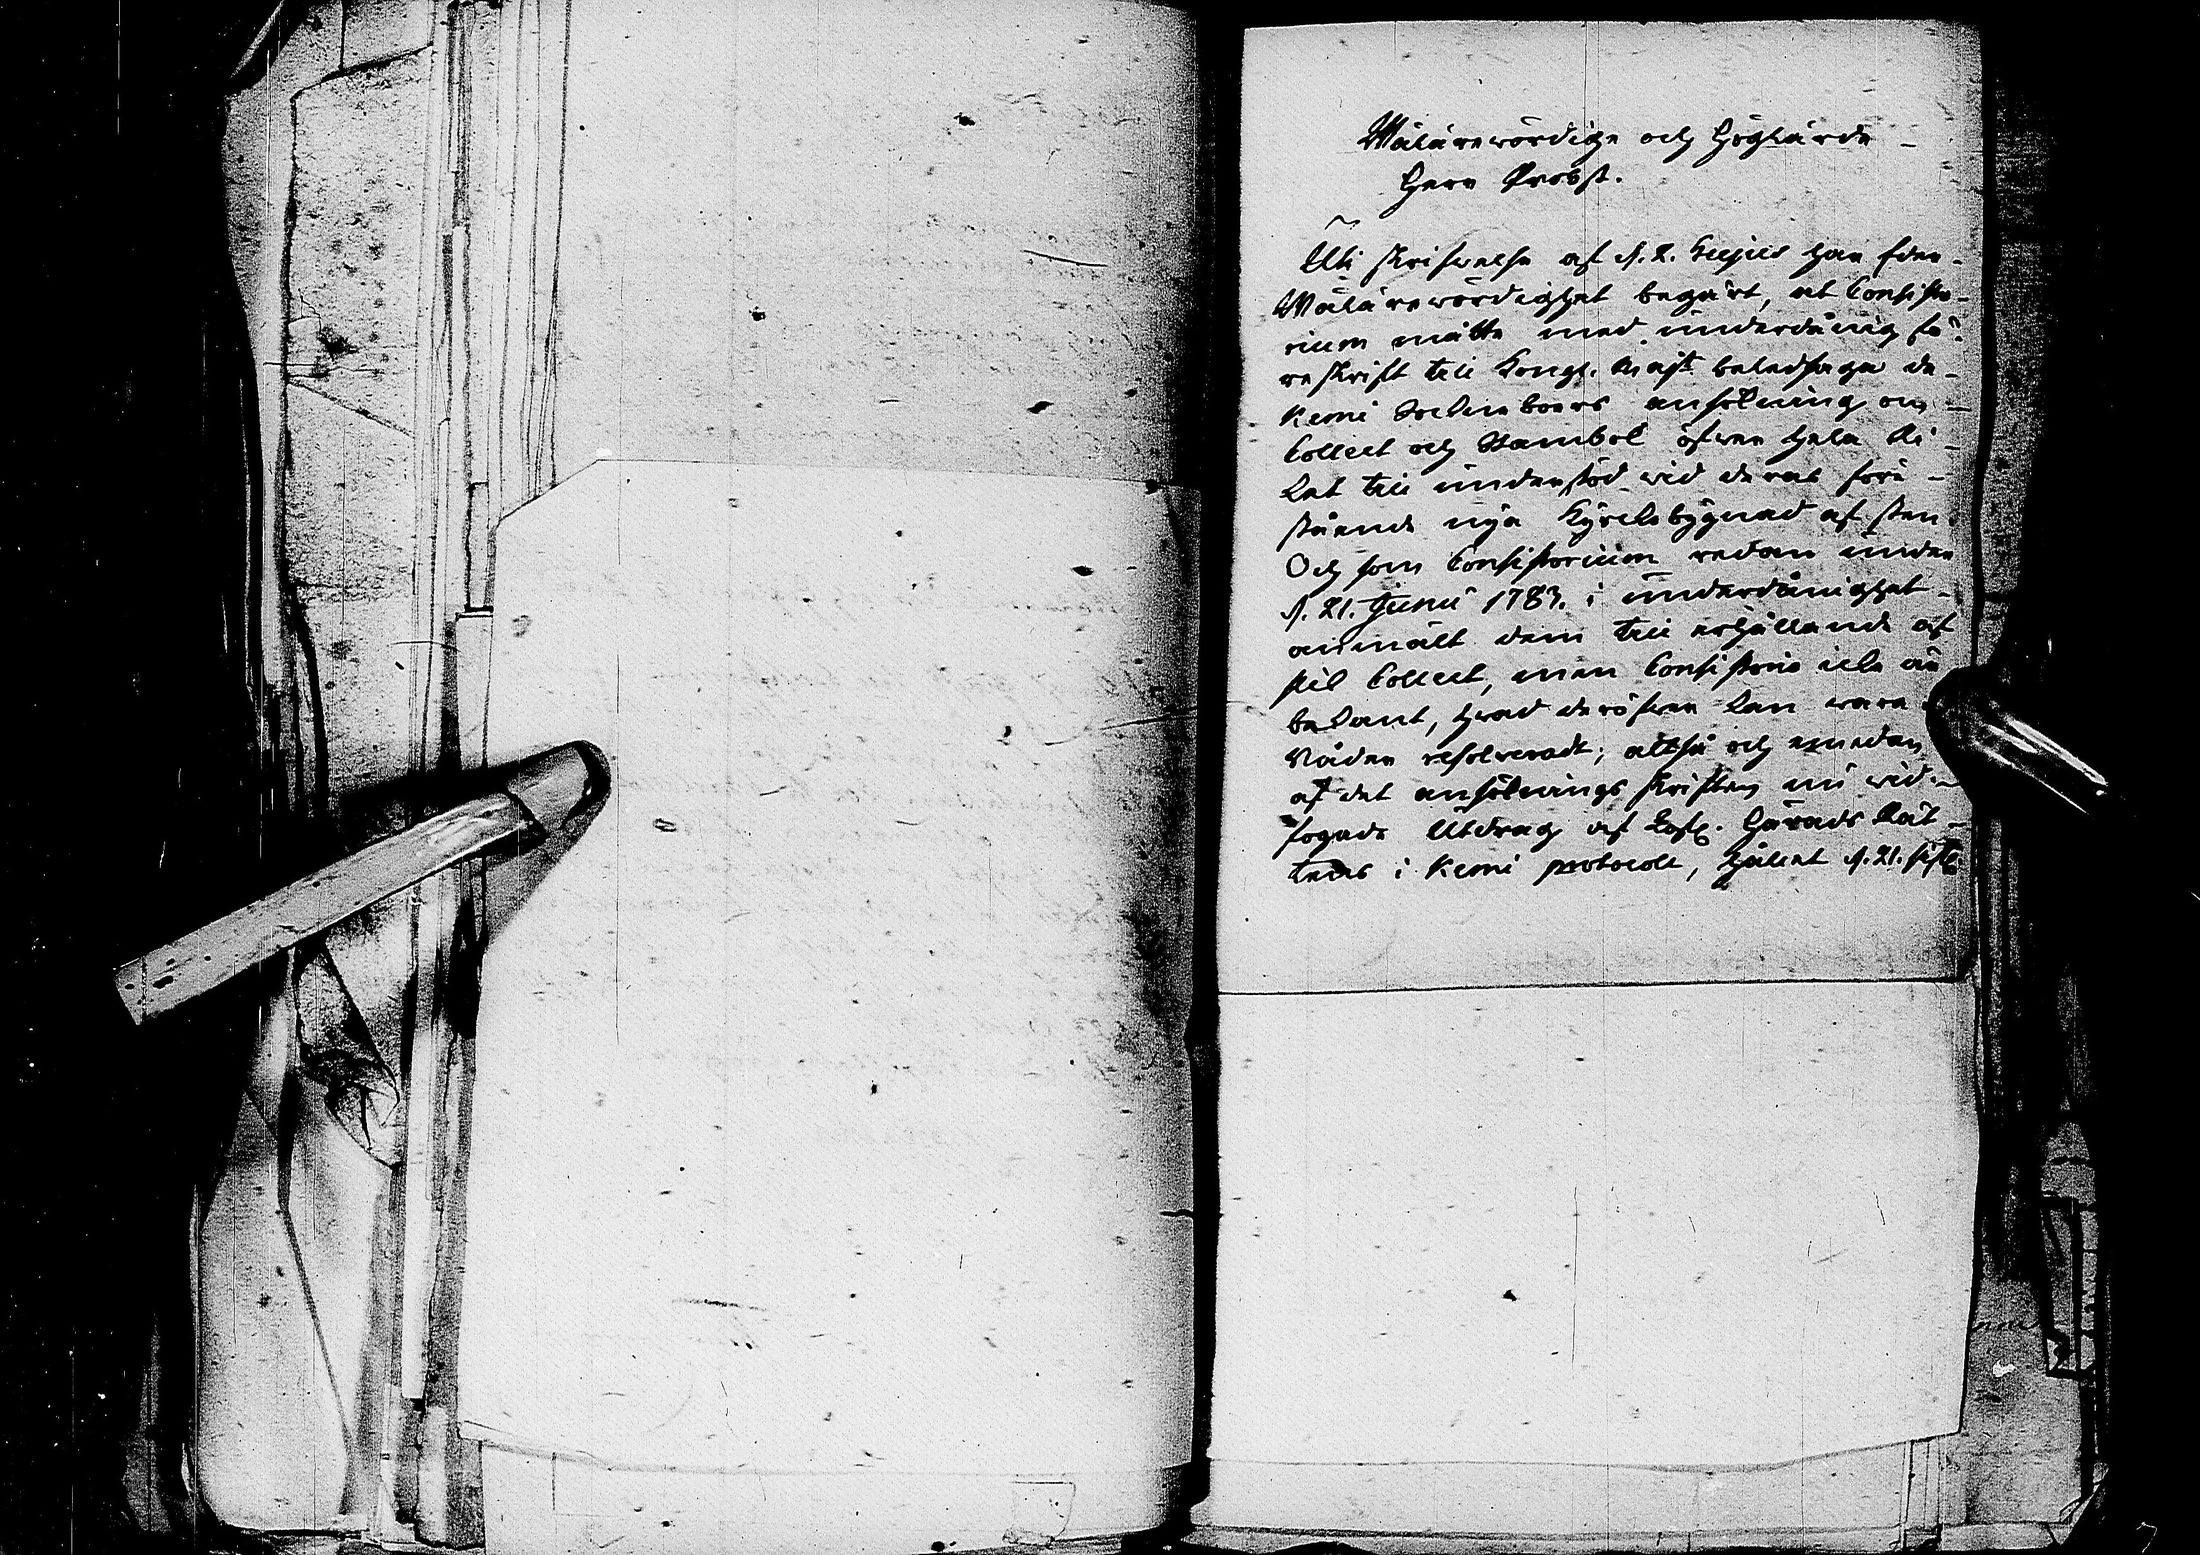 Wälärewördige och Höglärde
Herr Probst.
Uti skrifwelse af d. 2. hujus har Eder
Wälärewördighet begärt, at Consisto-
rium måtte med underdånig fö-
reskrift till Kongl. Maj:t beledsaga de
Kemi Sockneboers ansökning om
Collect och Stambok öfwer hela Ri-
ket till understöd wid deras före-
stående nya Kyrckobygnad af sten.
Och som Consistorium redan under
d. 21. Junii 1783. i underdånighet
anmält dem till erhållande af
slik Collect, men Consistorio icke är
bekant, hwad deröfwer kan wara
i Nåder resolveradt; altså och emedan
af det ansöknings skriften nu wid-
fogade Utdrag af Lofl. Härads Rät-
tens i Kemi protocoll, hållet d. 21. sistl.